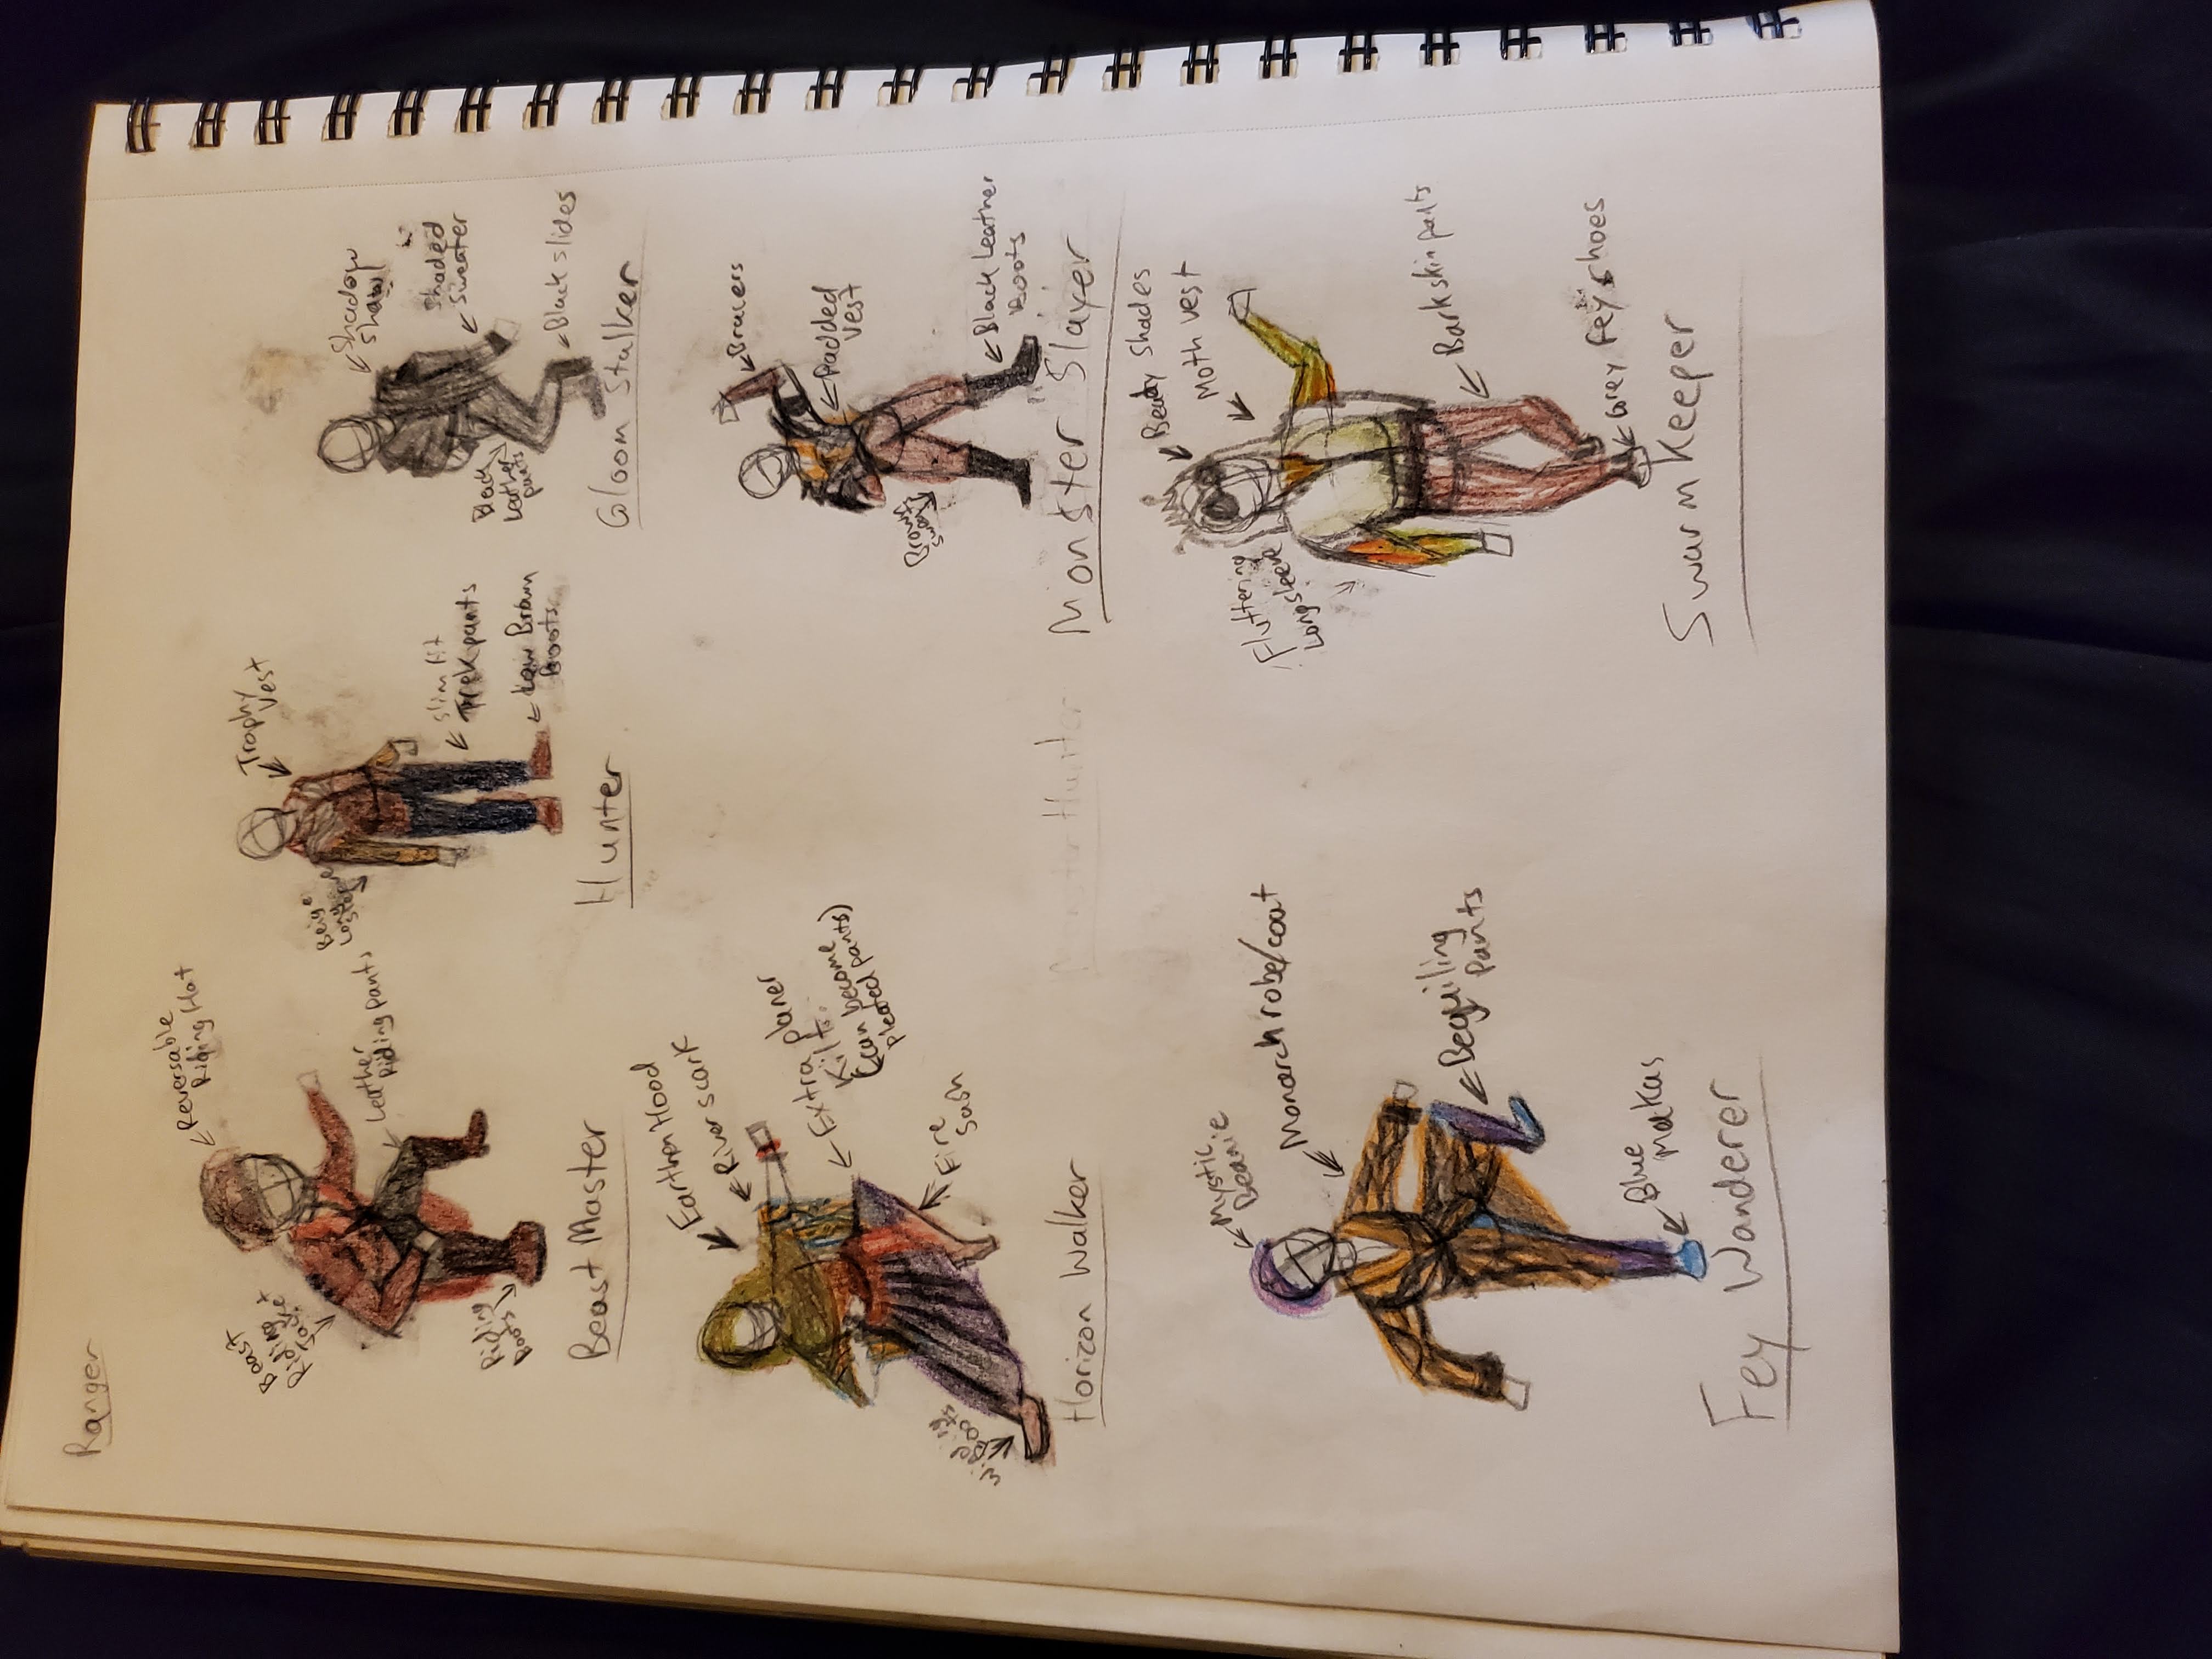 Ranger
Reversable
Riding Hat
Beast
Riding
Jacket
Leather
Riding pants
Riding
Boots
Beast Master
Trophy
Vest
Beige
Long
slim fit
Trek pants
Low Brown
Boots
Hunter
Shadow
Shawl
Shaded
Sweater
Black
Leather
pants
Black slides
Gloom Stalker
Earthen Hood
River scark
Extra planer
Kilts
(can become
pleated pants)
Fire
Sash
Wind
Boots
Horizon Walker
Monster Hunter
Bracers
Padded
Vest
Brown
sweats
Black Leather
Boots
Monster Slayer
Mystic
Beanie
Monarch robe/coat
Beguiling
Pants
Blue
Fey Wanderer
Beady Shades
Moth vest
Fluttering
Longsleeve
Barkskin pants
Grey Fey shoes
Swarm Keeper